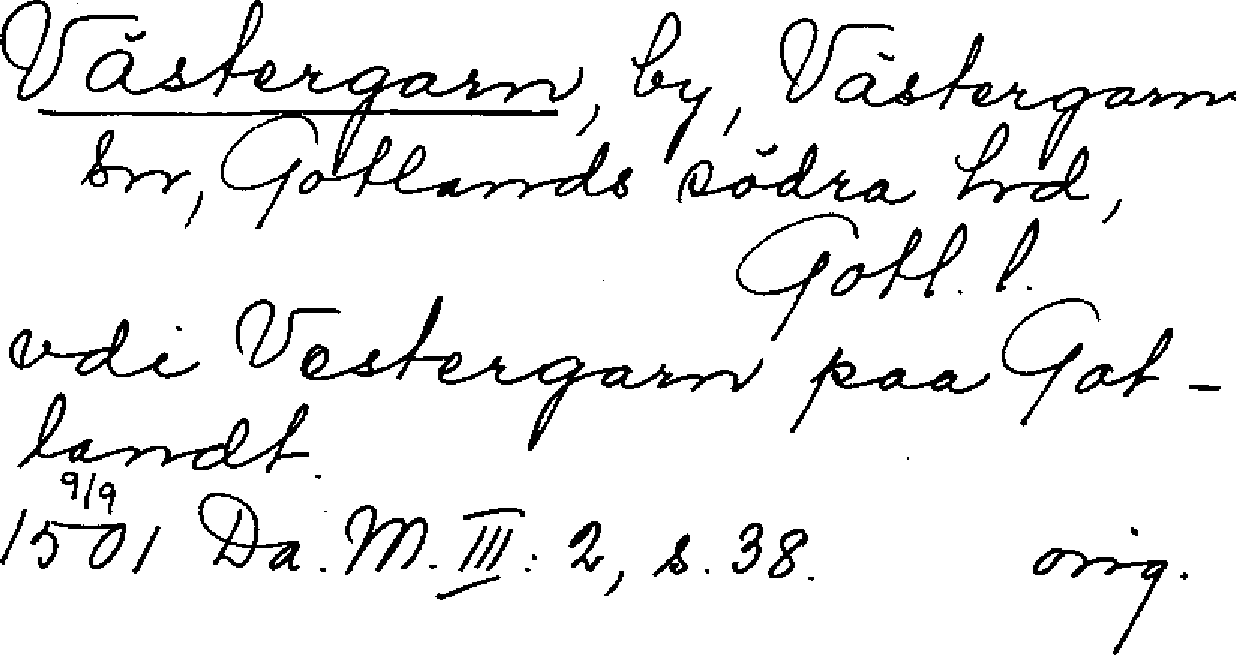 Västergarn, by, Västergarn
sn, Gotlands södra hd,
Gotl. l.
vdi Vestergarn paa Got-
landt.
9/9
1501 Da. M. III: 2, s. 38. orig.